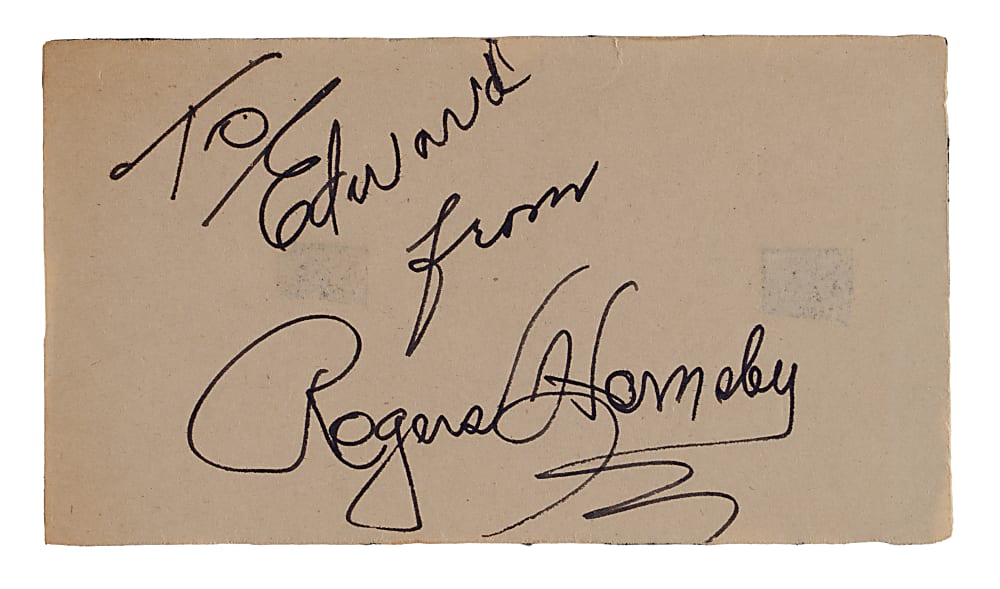 To Edward
from
Rogers Hornsby